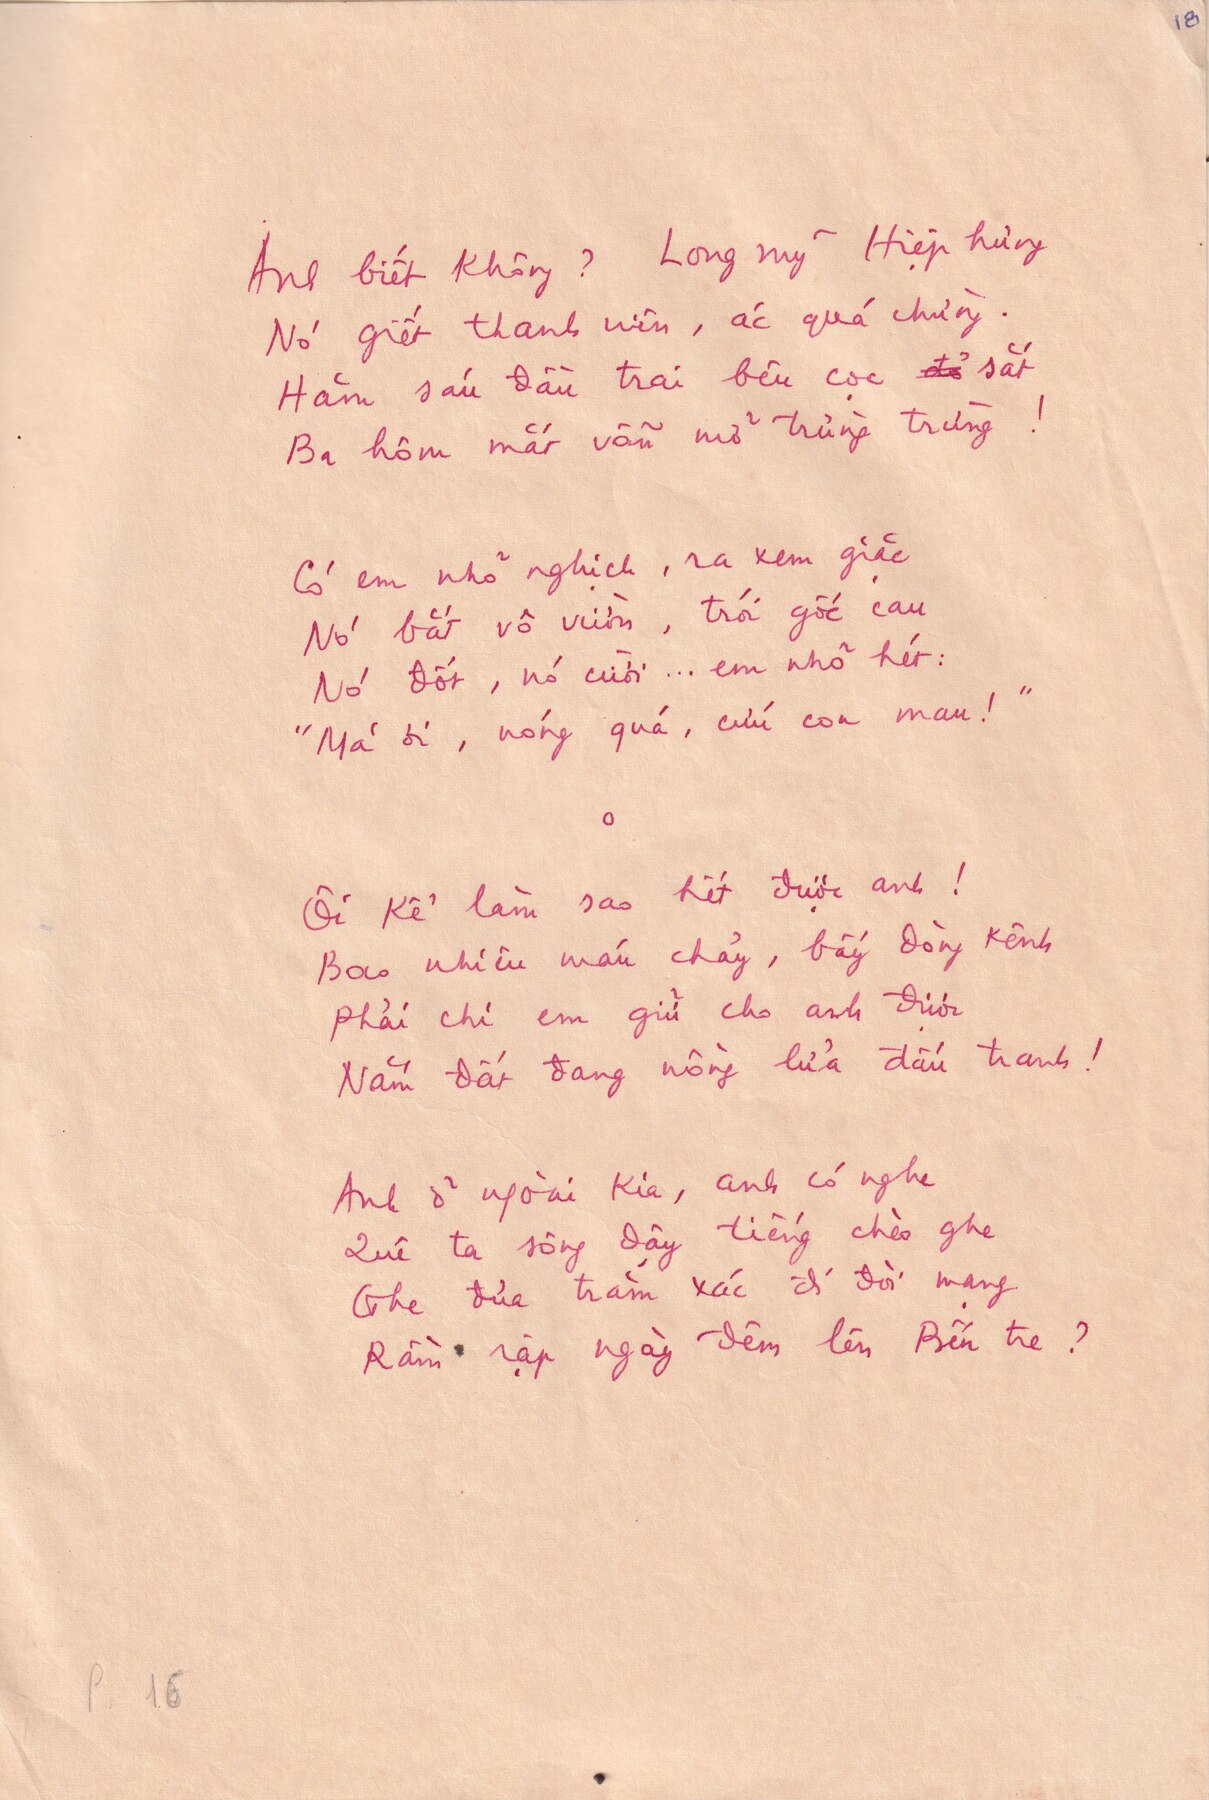 18
Anh biết không? Long mỹ Hiệp hưng
Nó giết thanh niên, ác quá chừng.
Hăm sáu đầu trai bêu cọc đỏ sắt
Ba hôm mắt vẫn mở trừng trừng!
Có em nhỏ nghịch, ra xem giặc
Nó bắt vô vườn, trói gốc cau
Nó đốt, nó cười... em nhỏ hét:
"Má ơi, nóng quá, cứu con mau!"
o
Ôi kể làm sao hết được anh!
Bao nhiêu máu chảy, bấy dòng kênh
Phải chi em giữ cho anh được
Nắm đất đang nồng lửa đấu tranh!
Anh ở ngoài kia, anh có nghe
Quê ta sông dậy tiếng chèo ghe
Ghe đưa trăm xác đi đòi mạng
Rầm rập ngày đêm lên Bến tre?
P. 16